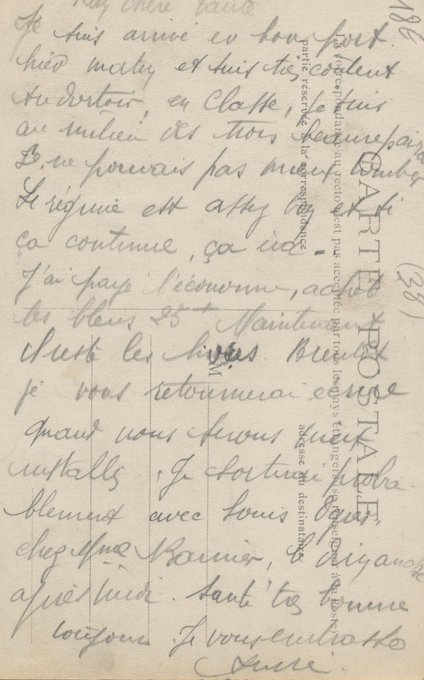 chère tante
Je suis arrivé en bon port
hier matin et suis très content
Au dortoir, en classe, je suis
au milieu des trois Beaurepaire
Je ne pouvais pas mieux tomber
Le régime est assez bon et si
ça continue, ça ira.
J'ai payé l'économe, acheté
les bleus 25 Maintenant
reste les livres. Bientôt
je vous retournerai
quand nous serons mieux
installés. Je sortirai proba
blement avec Louis
chez Mme le dimanche
après midi. Santé très bonne
toujours. Je vous embrasse
186
(38)
CARTE POSTALE
La correspondance au recto n'est pas acceptée par tous les pays étrangers (se renseigner à la Poste)
partie réservée à la correspondance
adresse du destinataire
M